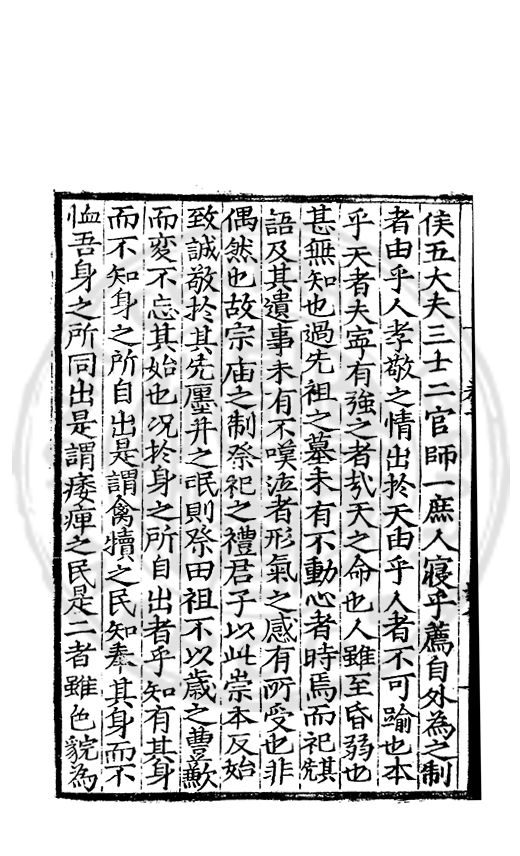 侯五大夫三士二官師一庶人寢乎薦自外為之制
者由乎人孝敬之情出於天由乎人者不可踰也本
乎天者夫寧有強之者㢤天之命也人雖至昏弱也
甚無知也過先祖之墓未有不動心者時焉而祀其
語及其遺事未有不嘆泣者形氣之感有所受也非
偶然也故宗庙之制祭祀之禮君子以此崇本反始
致誠敬於其先壥井之氓則祭田祖不以歳之豐歉
而変不忘其始也况於身之所自出者乎知有其身
而不知身之所自出是謂禽犢之民知奉其身而不
恤吾身之所同出是謂痿痺之民是二者雖色貌為